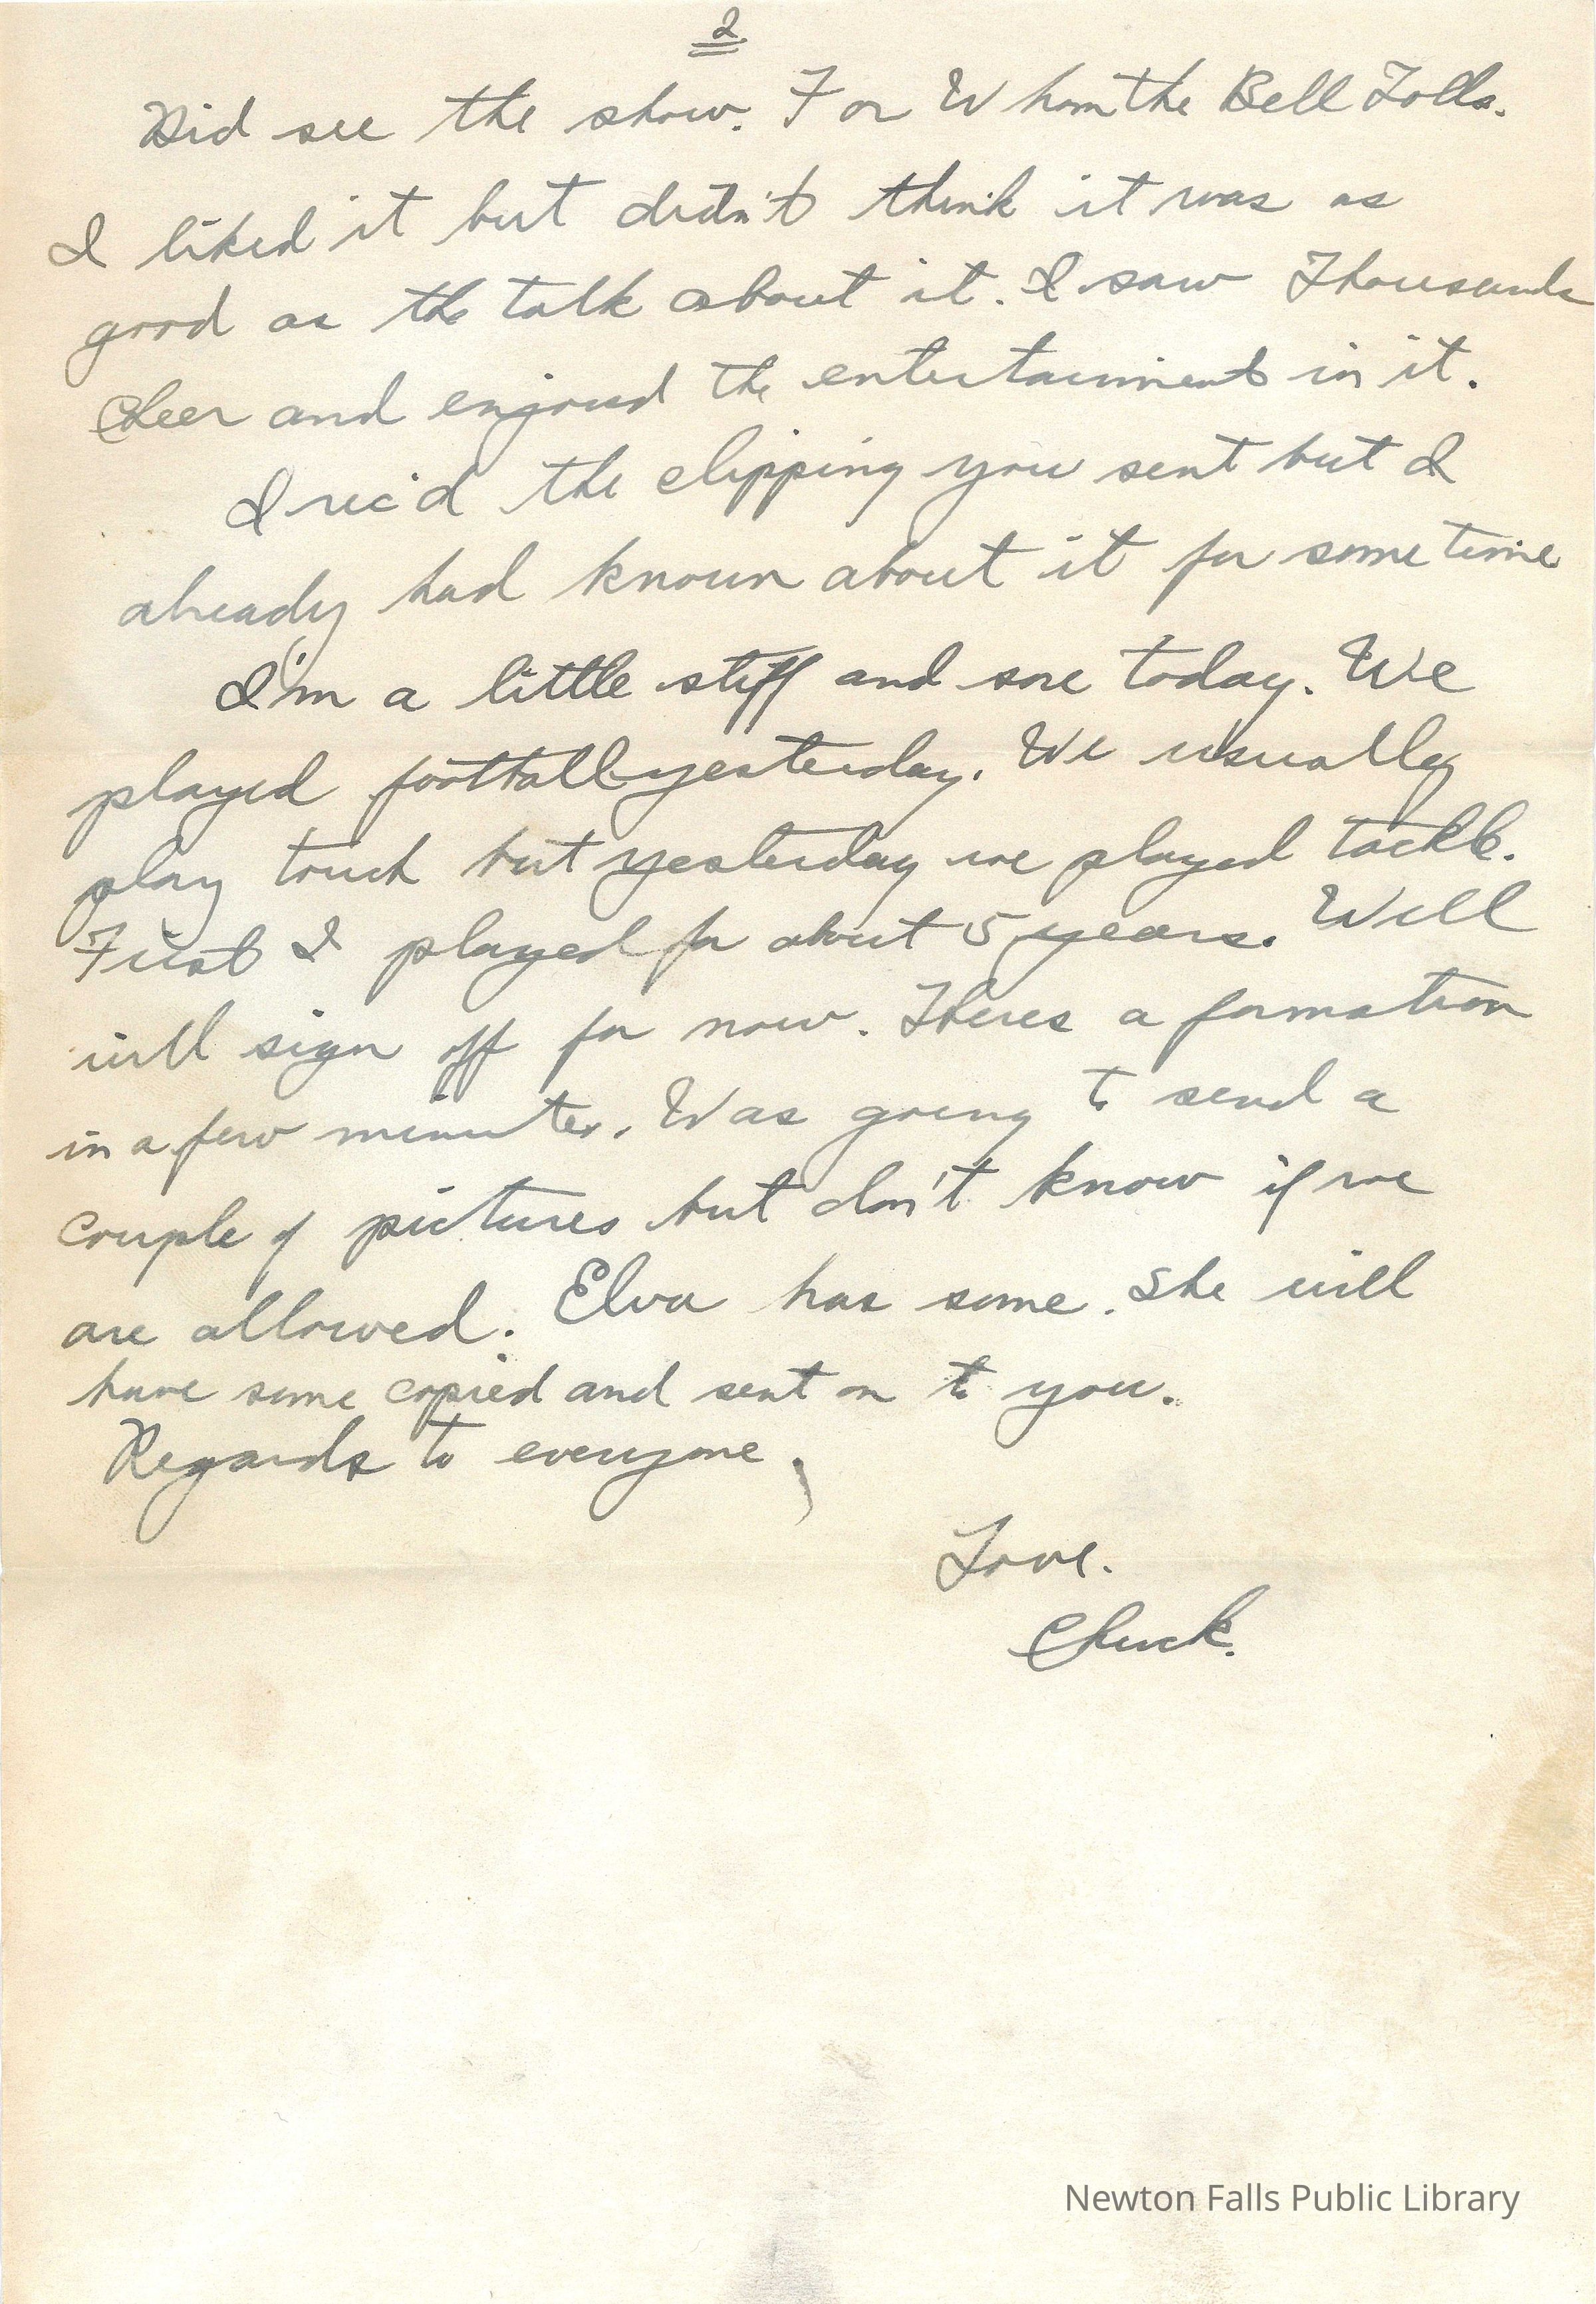 2
Did see the show. For Whom the Bell Tolls.
I liked it but didn't think it was as
good as the talk about it. I saw Thousands
Cheer and enjoyed the entertainment in it.
I rec'd the clipping you sent but I
already had known about it for some time
I'm a little stiff and sore today. We
played football yesterday. We usually
play touch but yesterday we played tackle.
First I played for about 5 years. Well
will sign off for now. Theres a formation
in a few minutes. Was going to send a
couple of pictures but don't know if we
are allowed. Elva has some. She will
have some copied and sent on to you.
Regards to everyone,
Love.
Chuck.
Newton Falls Public Library